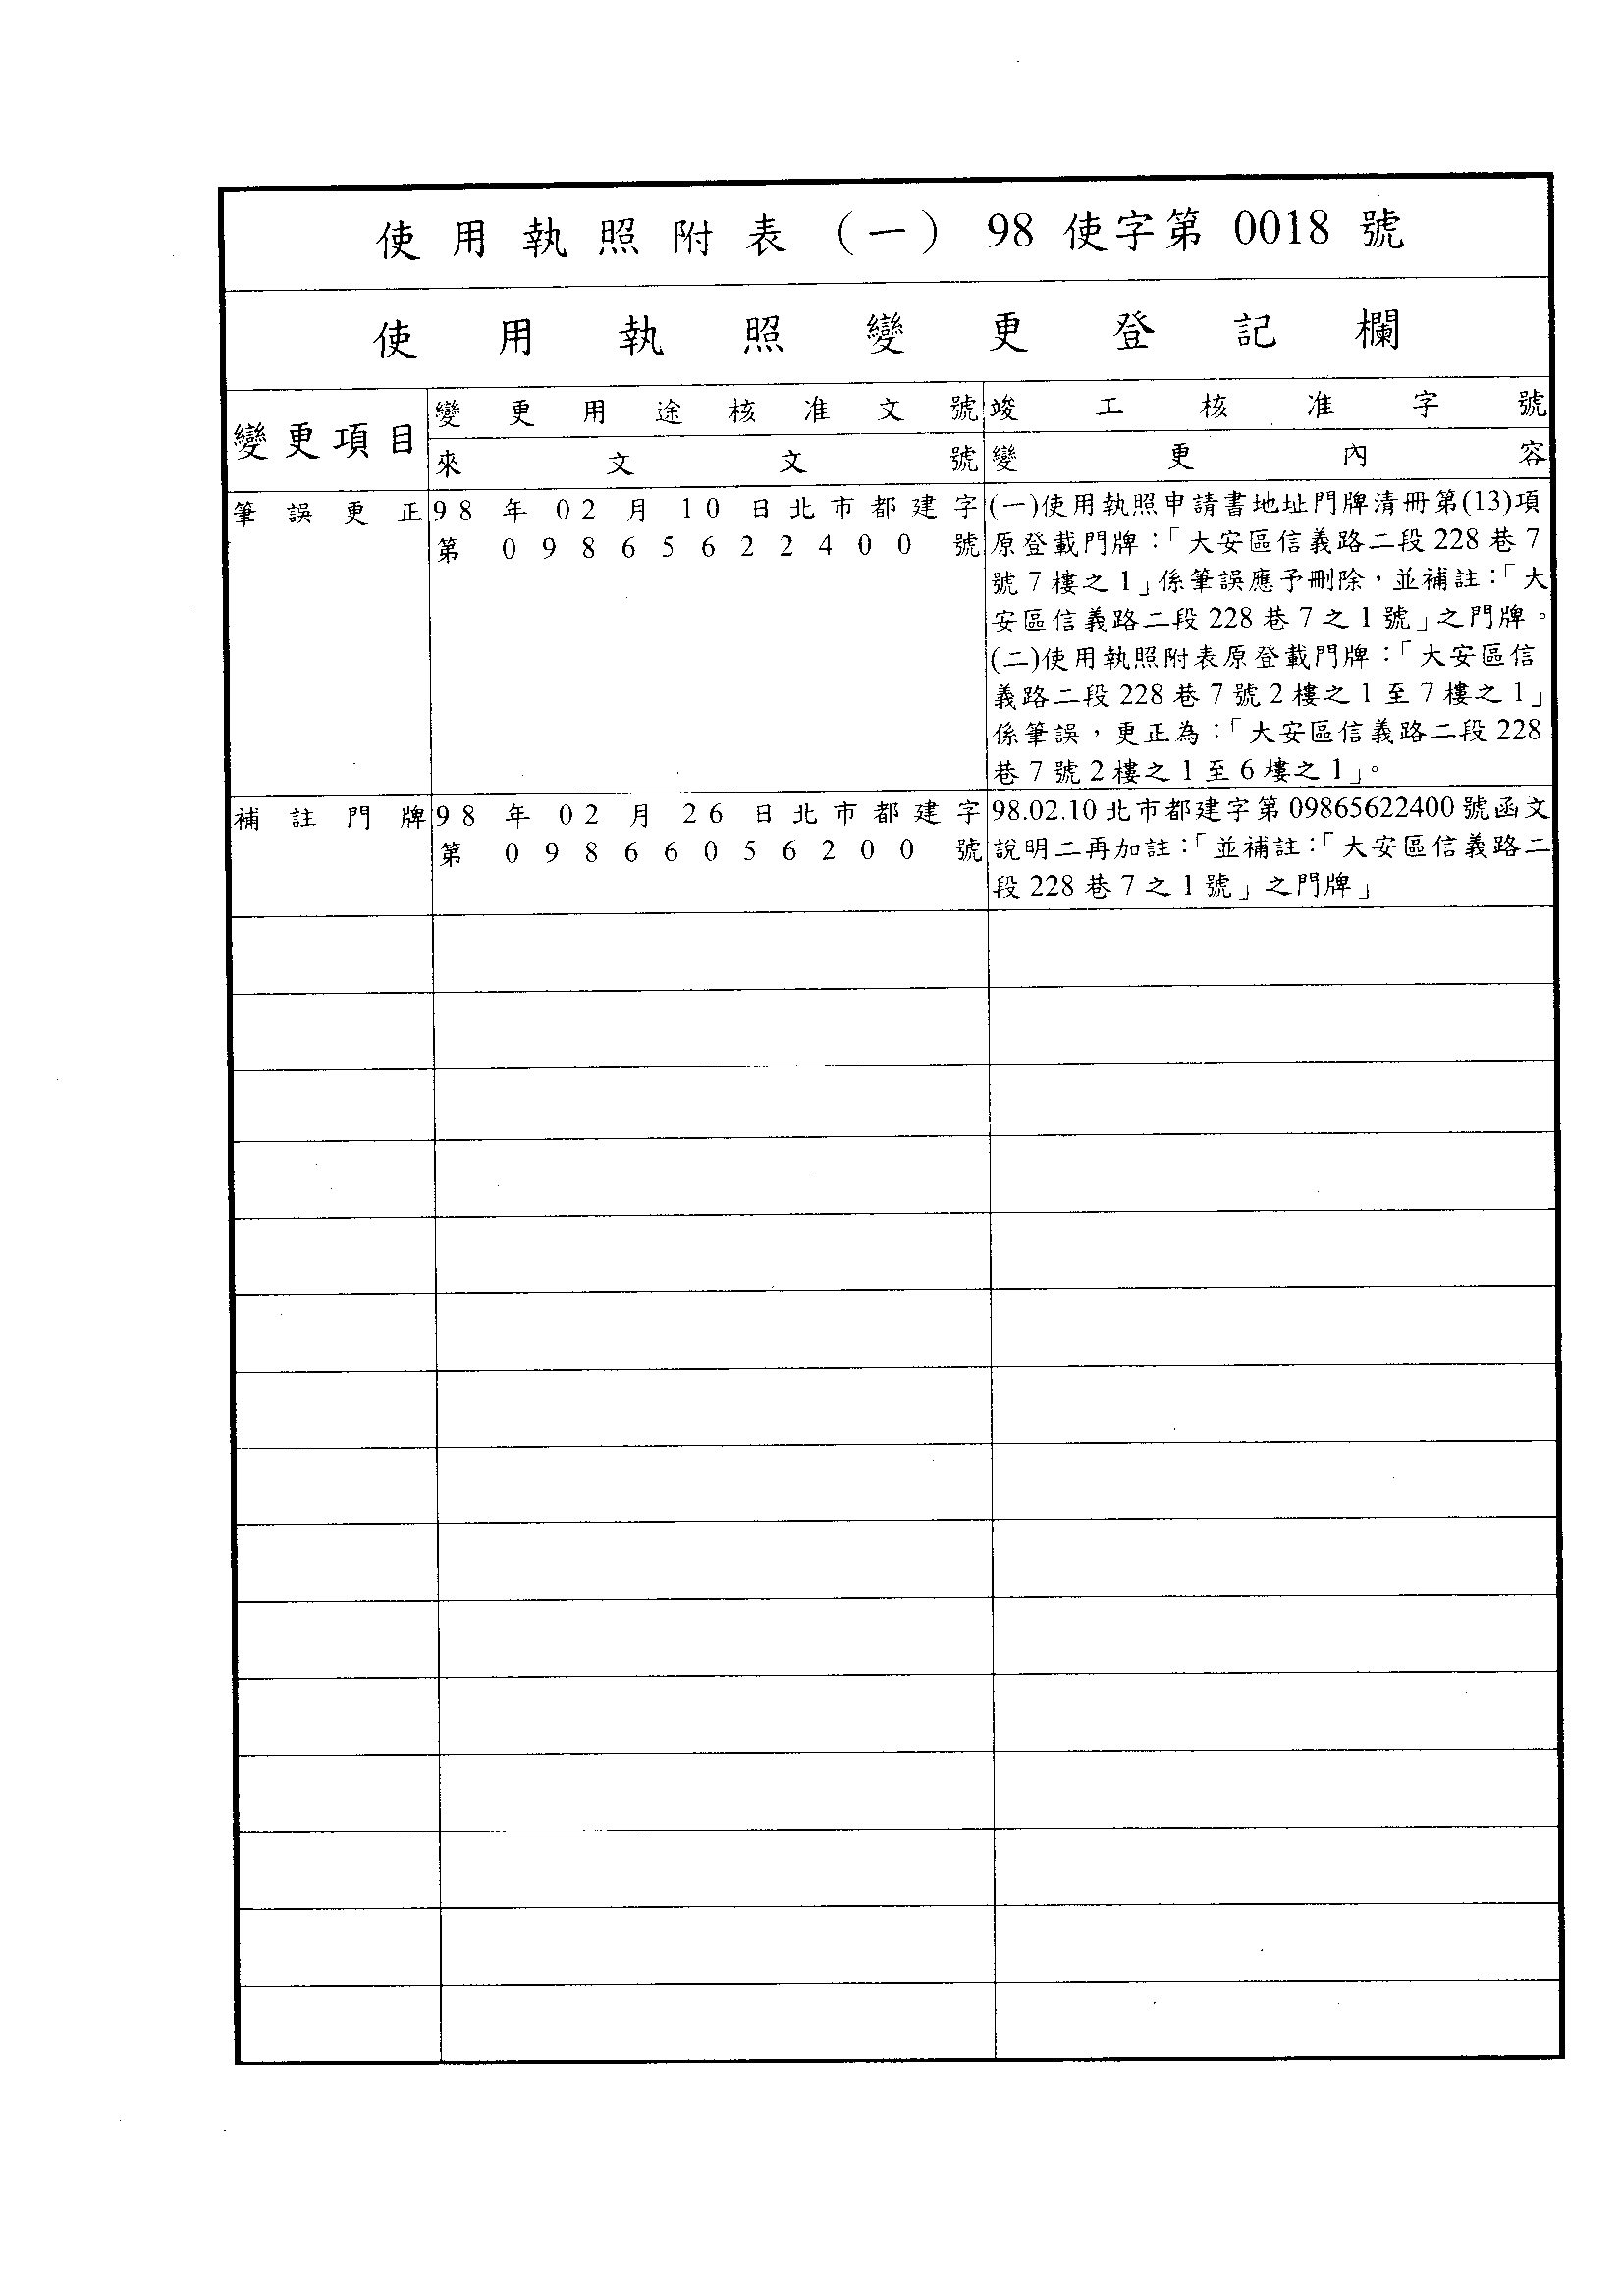 使用執照附表（一） 98 使字第 0018 號
使用執照變更登記欄
變更項目
變更用途核准文號
竣工核准字號
來文文號
變更內容
筆誤更正
98年02月10日北市都建字
第09865622400號
(一)使用執照申請書地址門牌清冊第(13)項
原登載門牌：「大安區信義路二段228巷7
號7樓之1」係筆誤應予刪除，並補註：「大
安區信義路二段228巷7之1號」之門牌。
(二)使用執照附表原登載門牌：「大安區信
義路二段228巷7號2樓之1至7樓之1」
係筆誤，更正為：「大安區信義路二段228
巷7號2樓之1至6樓之1」。
補註門牌
98年02月26日北市都建字
第09866056200號
98.02.10北市都建字第09865622400號函文
說明二再加註：「並補註：「大安區信義路二
段228巷7之1號」之門牌」